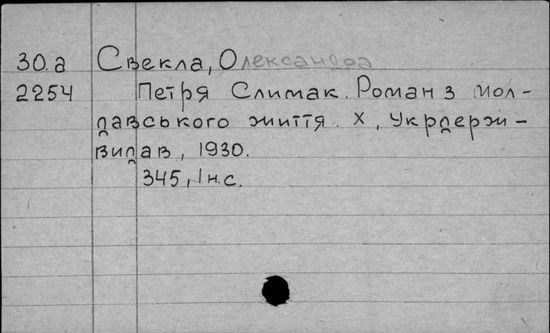 30.а Свекла, Олександра
2254 Петря Слимак. Роман з мол-
давського життя. Х, Укрдерж-
видав, 1930.
345, Iн.с.